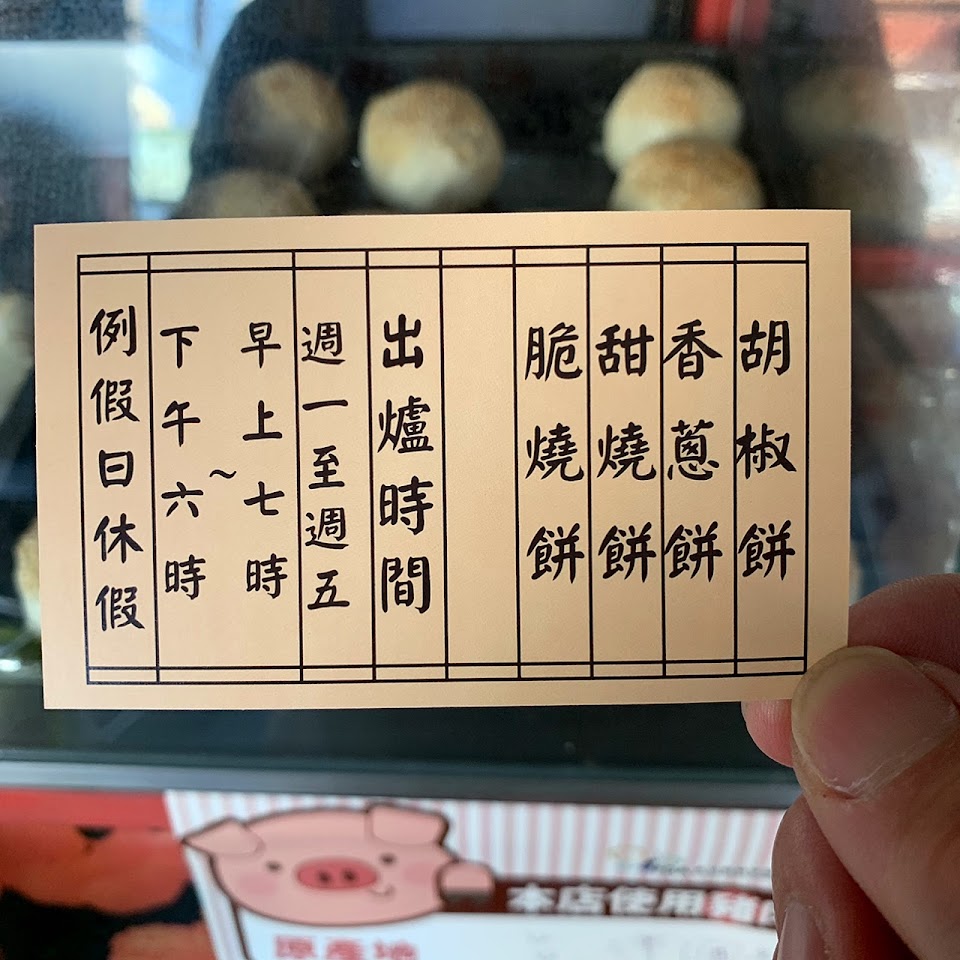 胡椒餅
香蔥餅
甜燒餅
脆燒餅
出爐時間
週一至週五
早上七時
~
下午六時
例假日休假
本店使用豬
原產地